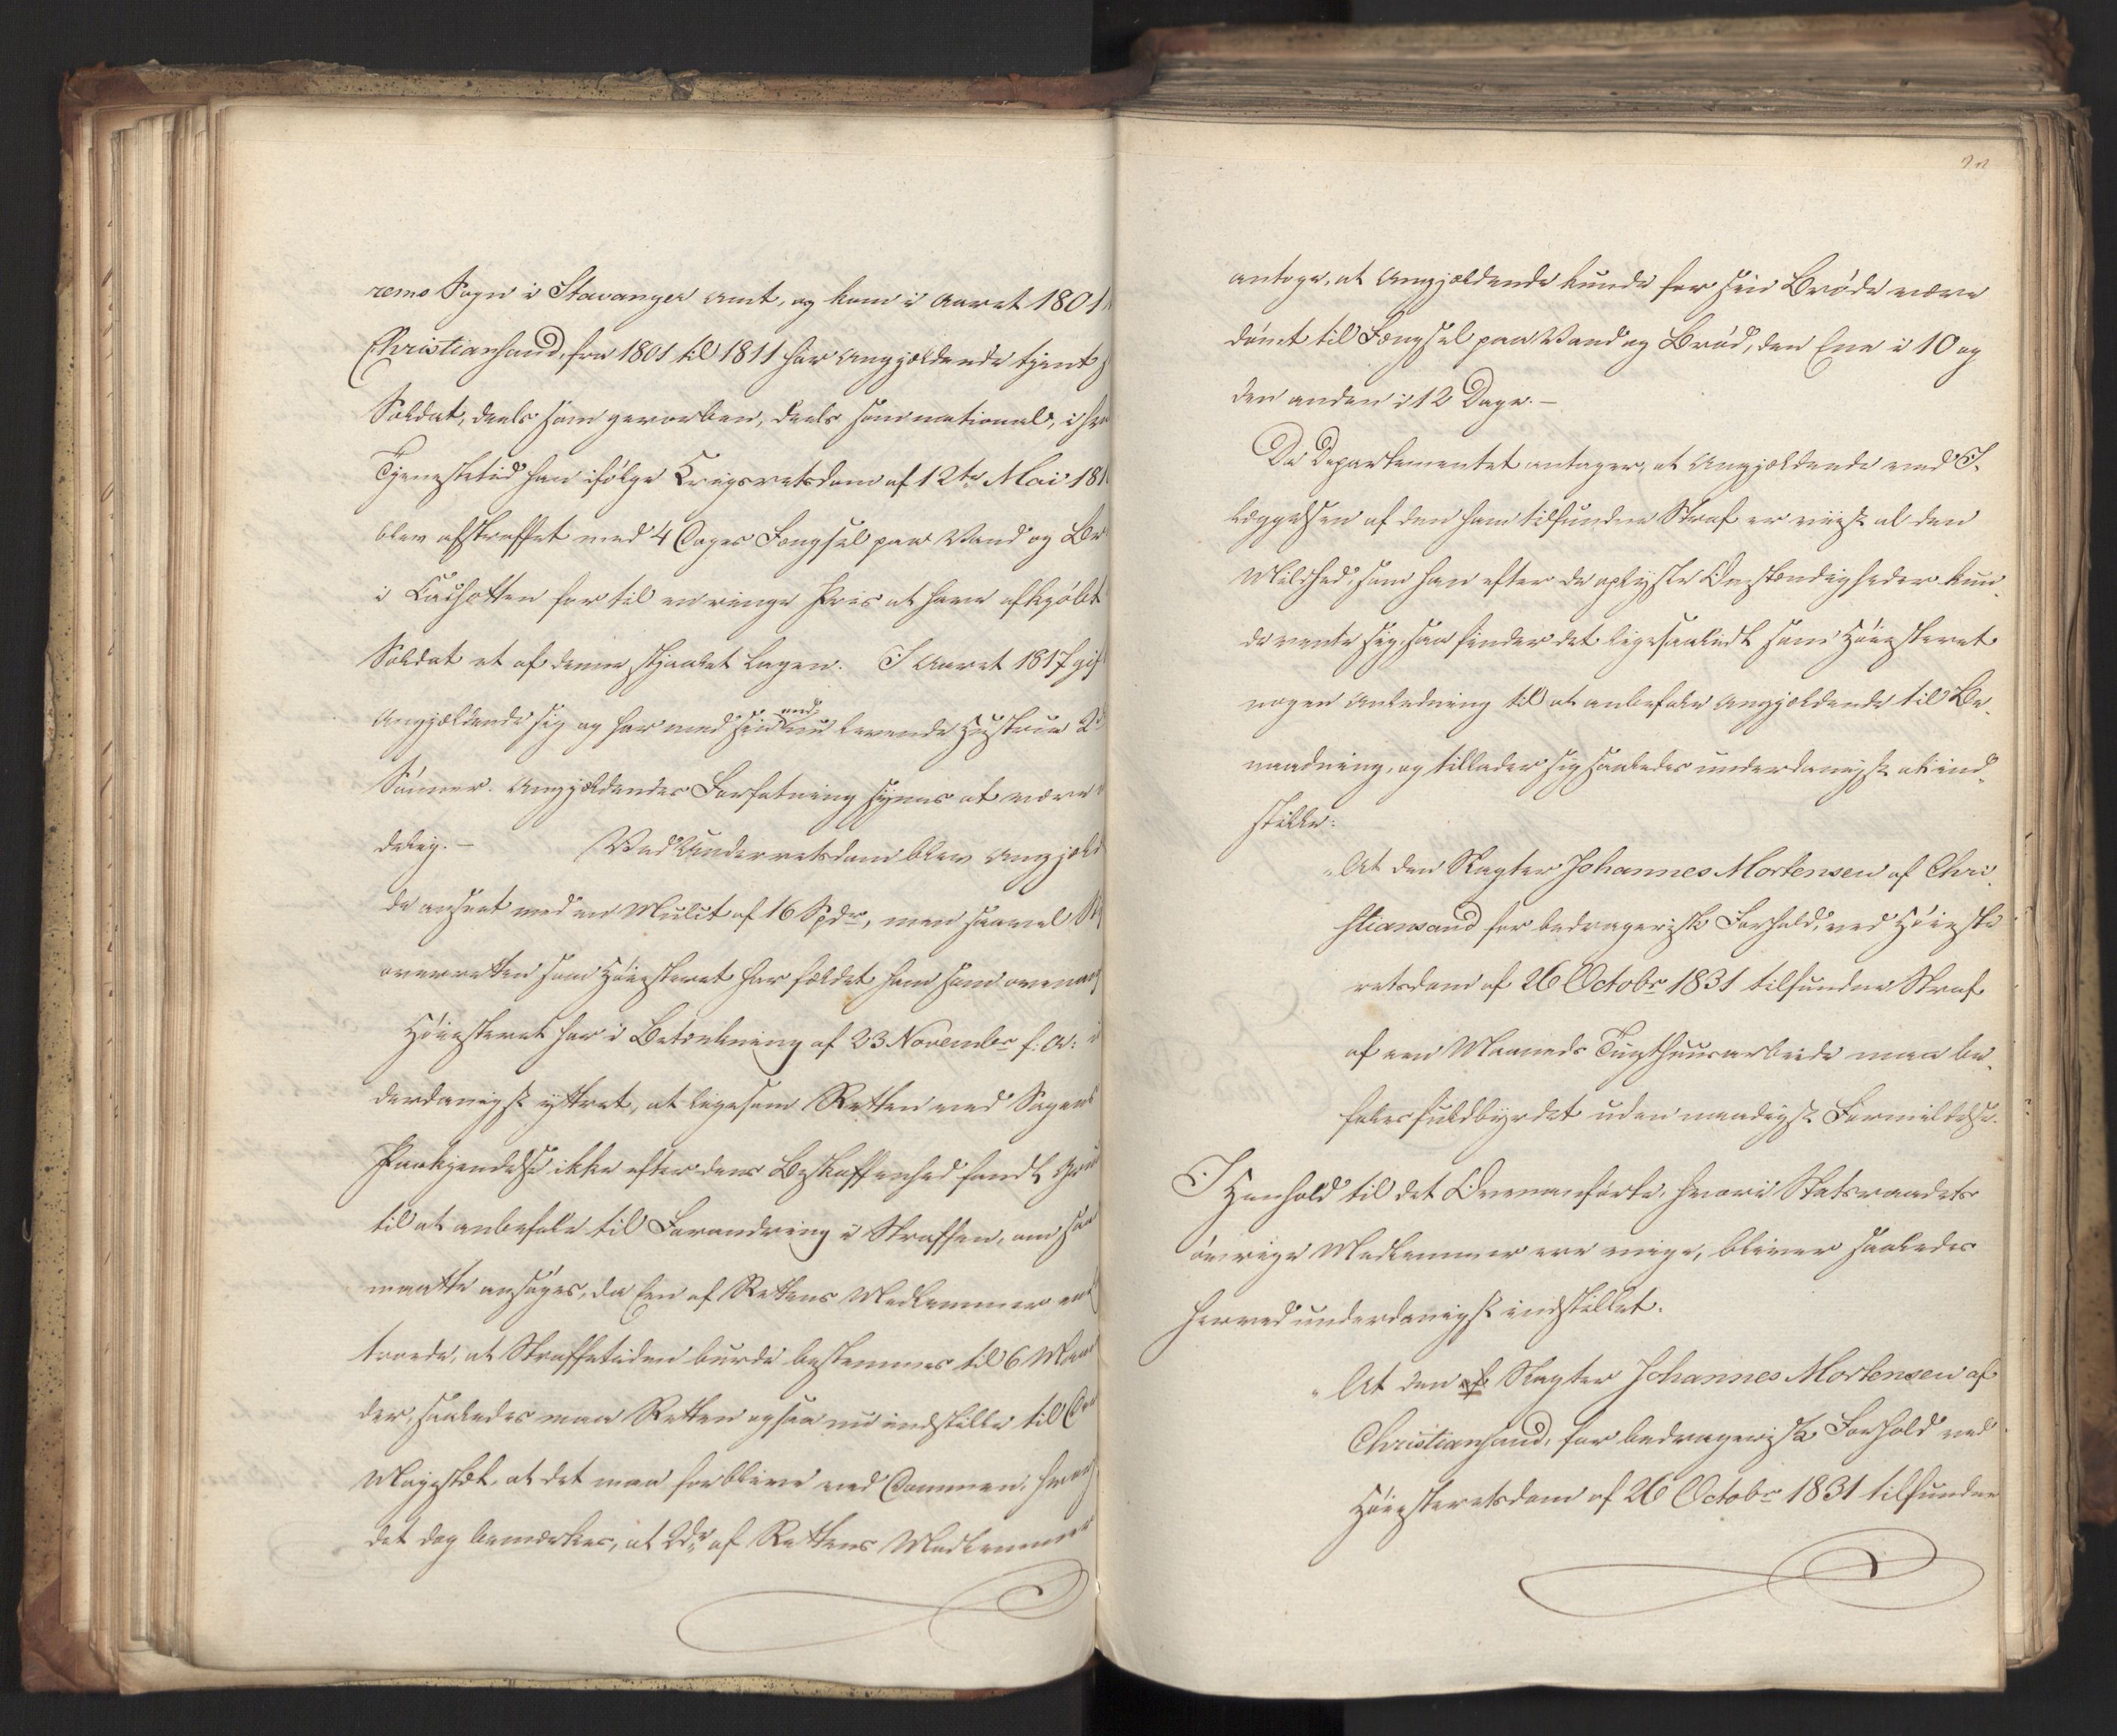 rems Sogn i Stavanger Amt, og kom i Aaret 1801
Christiansand, fra 1801 til 1811 har Angjældende tjent
Soldat, deels som gevorben, deels som national, i hv
Tjenestetid han ifølge Krigsretsdom af 12te Mai 181
blev afstraffet med 4 Dages Fængsel paa Vand og Br
i Cachotten for til en ringe Priis at have afkjøbt
Soldat et af denne stjaalet Lagen. I Aaret 1817 gif
Angjældende sig og har med sin end nu levende Hustrue 2
Sønner. Angjældendes Forfatning synes at være
delig. – Ved Underretsdom blev Angjæld
de anseet med en Mulct af 16 Spdr, men saavel St
overretten som Høiesteret har fældet ham som ovenan
Høiesteret har i Betænkning af 23 Novembr f: A:
derdanigst yttret, at ligesom Retten ved Sagens
Paakjendelse ikke efter dens Beskaffenhed fandt Gru
til at anbefale til Forandring i Straffen, om saa
maatte ansøges, da Een af Rettens Medlemmer end
troede, at Straffetiden burde bestemmes til 6 Maa
der, saaledes maa Retten ogsaa nu indstille til De
Majestæt, at det maa forblive ved Dommen, hvor
det dog bemærkes, at 2de af Rettens Medlemmer
antoge, at Angjældende kunde for sin Brøde være
dømt til Fængsel paa Vand og Brød, den Ene i 10 og
den anden i 12 Dage. –
Da Departementet antager, at Angjældende ved I-
læggelsen af den ham tilfundne Straf er viist al den
Mildhed, som han efter de oplyste Omstændigheder kun-
de vente sig, saa finder det ligesaalidt som Høiesteret
nogen Anledning til at anbefale Angjældende til Be-
naadning, og tillader sig saaledes underdanigst at ind-
stille:
"At den Slagter Johannes Mortensen af Chri-
stiansand for bedragerisk Forhold, ved Høieste
retsdom af 26 Octobr 1831 tilfundne Straf
af een Maaneds Tugthuusarbeide maa be-
fales fuldbyrdet uden naadigst Formildelse.
I Henhold til det Ovenanførte, hvori Statsraadets
øvrige Medlemmer ere enige, bliver saaledes
herved underdanigst indstillet.
"At den af Slagter Johannes Mortensen af
Christiansand, for bedragerisk Forhold ved
Høiesteretsdom af 26 Octobr 1831 tilfundne